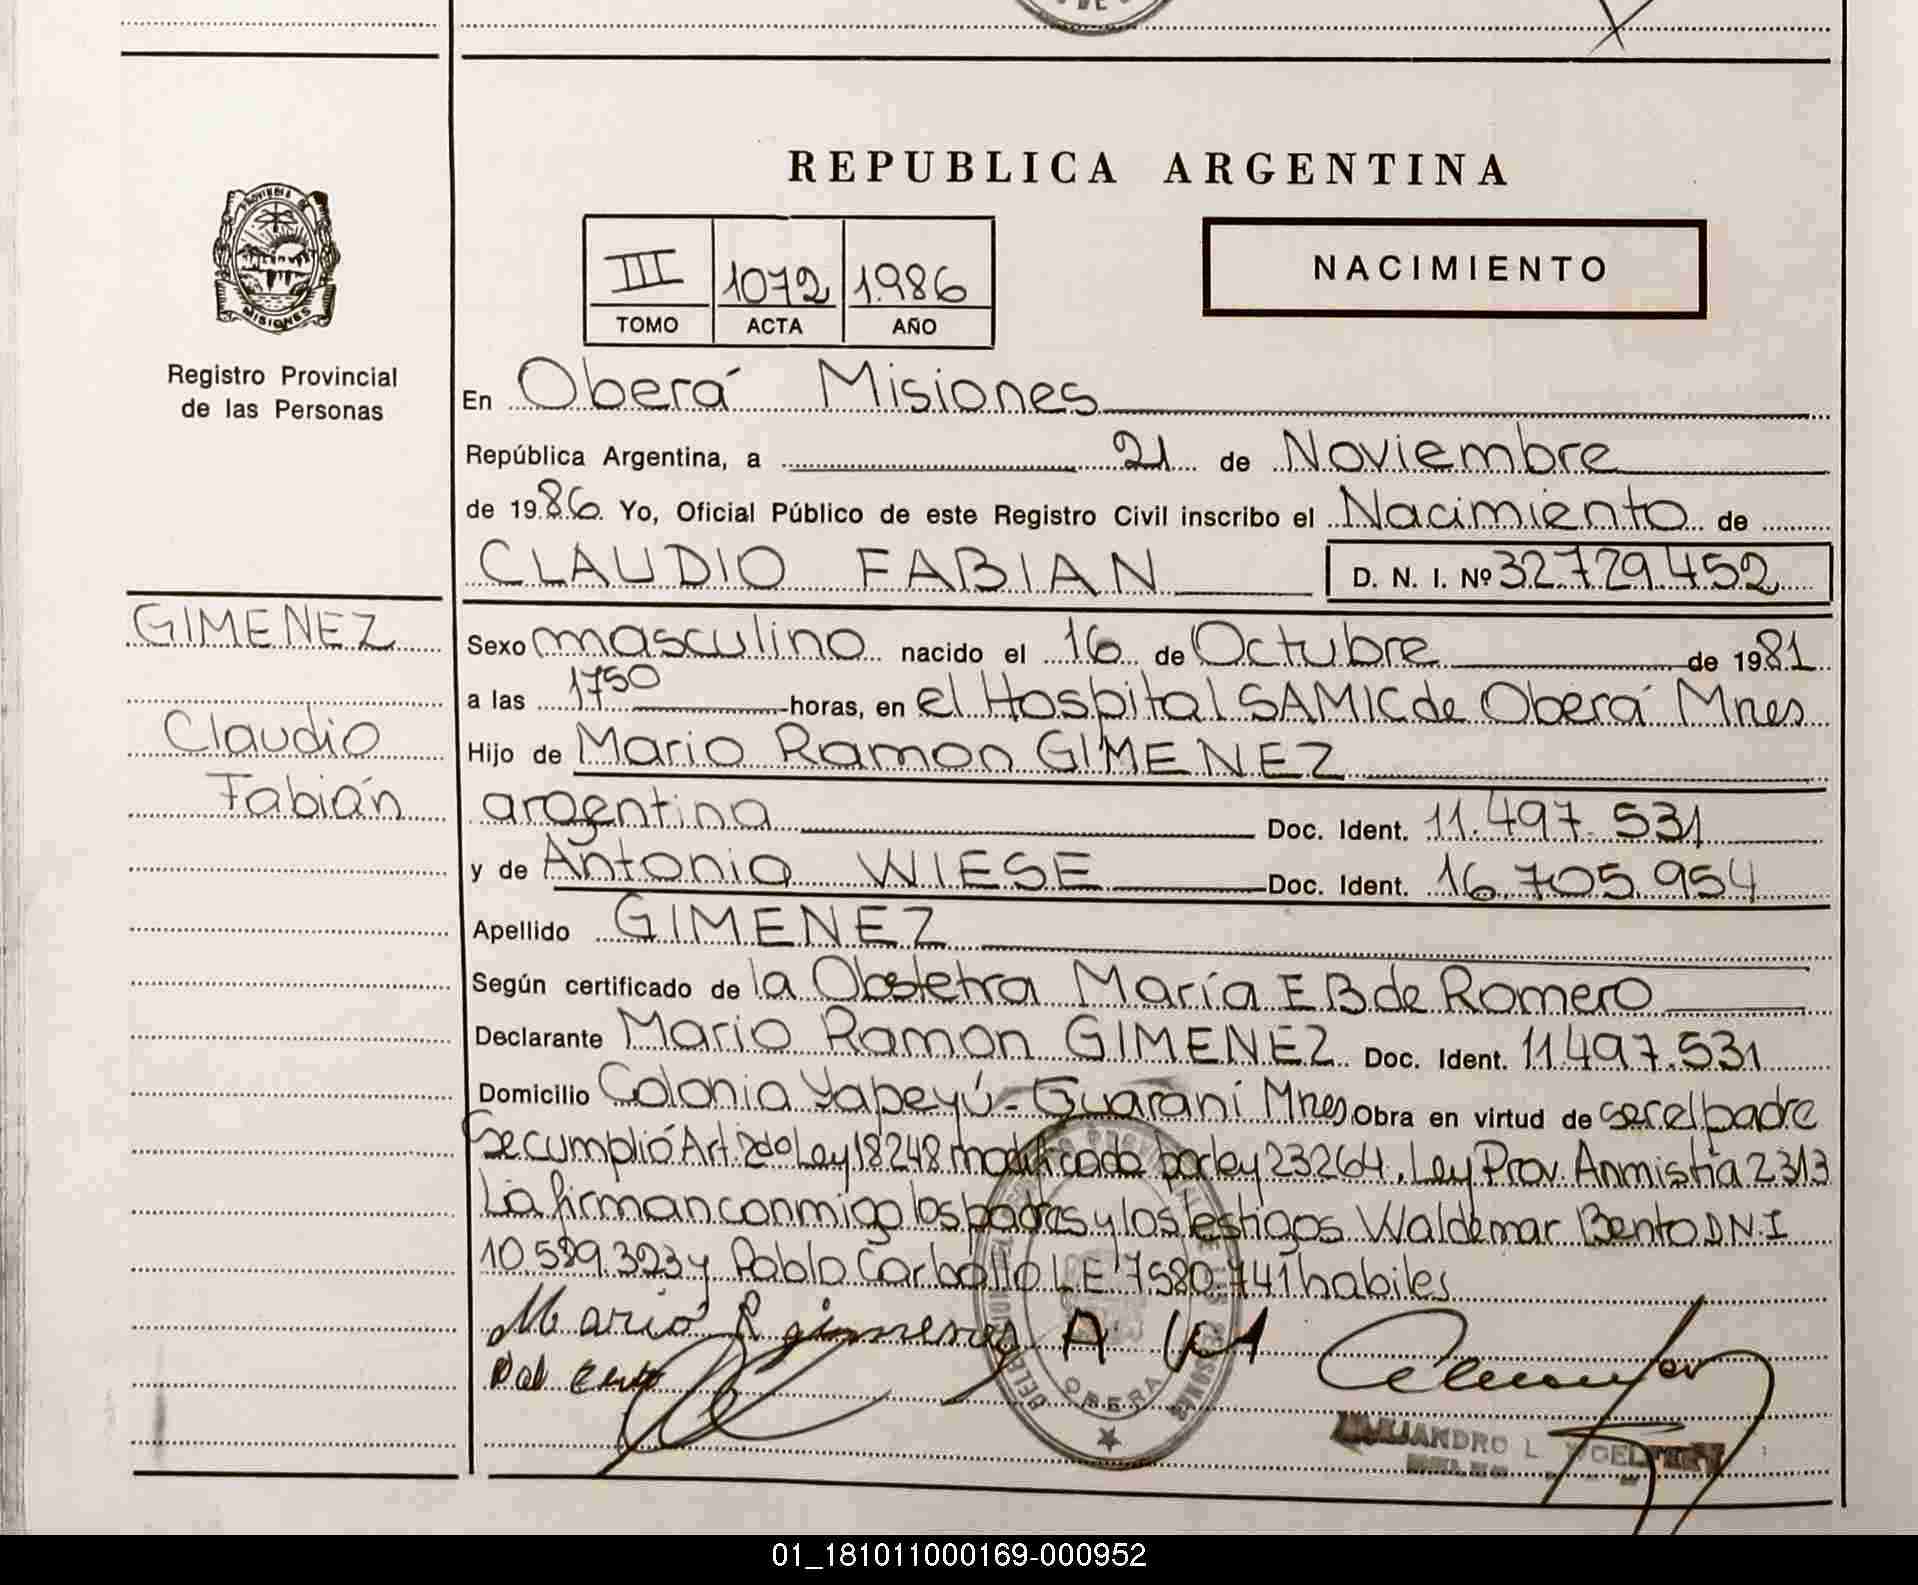 REPUBLICA ARGENTINA
III 1072 1986
TOMO ACTA AÑO
NACIMIENTO
PROVINCIA DE
MISIONES
Registro Provincial
de las Personas
En Oberá Misiones
República Argentina, a 21 de Noviembre
de 1986 Yo, Oficial Público de este Registro Civil inscribo el Nacimiento de
CLAUDIO FABIAN D. N. I. Nº 32.729.452
GIMENEZ
Claudio
Fabián
Sexo masculino nacido el 16 de Octubre de 1981
a las 1750 horas, en el Hospital SAMIC de Oberá Mnes
Hijo de Mario Ramon GIMENEZ
argentina Doc. Ident. 11.497.531
y de Antonia WIESE Doc. Ident. 16.705.954
Apellido GIMENEZ
Según certificado de la Obstetra María E B de Romero
Declarante Mario Ramon GIMENEZ Doc. Ident. 11.497.531
Domicilio Colonia Yapeyú - Guaraní Mnes Obra en virtud de ser el padre
Se cumplió Art. 2do Ley 18248 modificada por ley 23264, Ley Prov. Anmistía 2313
La firman conmigo los padres y los testigos Waldemar Bento D.N.I
10.589.323 y Pablo Carballo L.E 7580.741 habiles
Mario R gimenes A
OBERA
ALEJANDRO L
01_181011000169-000952